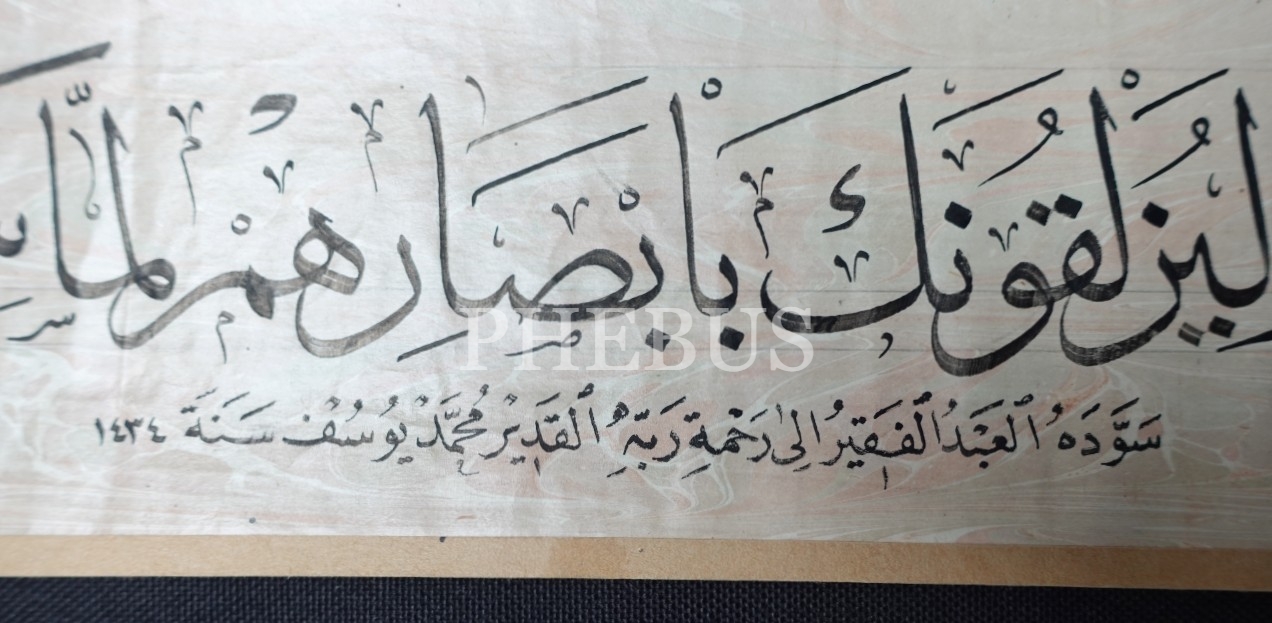 لَيُزْلِقُونَكَ بِأَبْصَارِهِمْ لَمَّا
PHEBUS
سَوَّدَهُ ٱلْعَبْدُ ٱلْفَقِيرُ إِلىٰ رَحْمَةِ رَبِّهِ ٱلْقَدِيرِ مُحَمَّدْ يُوسُفْ سَنَةَ ١٤٣٤